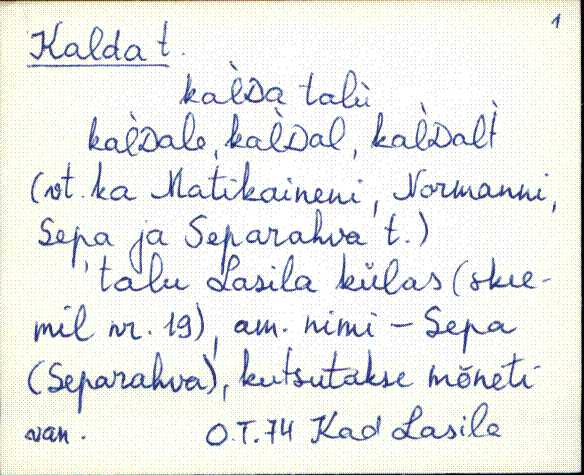 1
Kalda t.
kaʟ̀ᴅa talù
kaʟ̀ᴅale, kaʟ̀ᴅal, kaʟ̀ᴅalt̀
(vt. ka Matikaineni, Normanni,
Sepa ja Separahva t.)
talu Lasila külas (skee-
mil nr. 19), am. nimi – Sepa
(Separahva), kutsutakse mõneti
van. O.T. 74 Kad Lasila